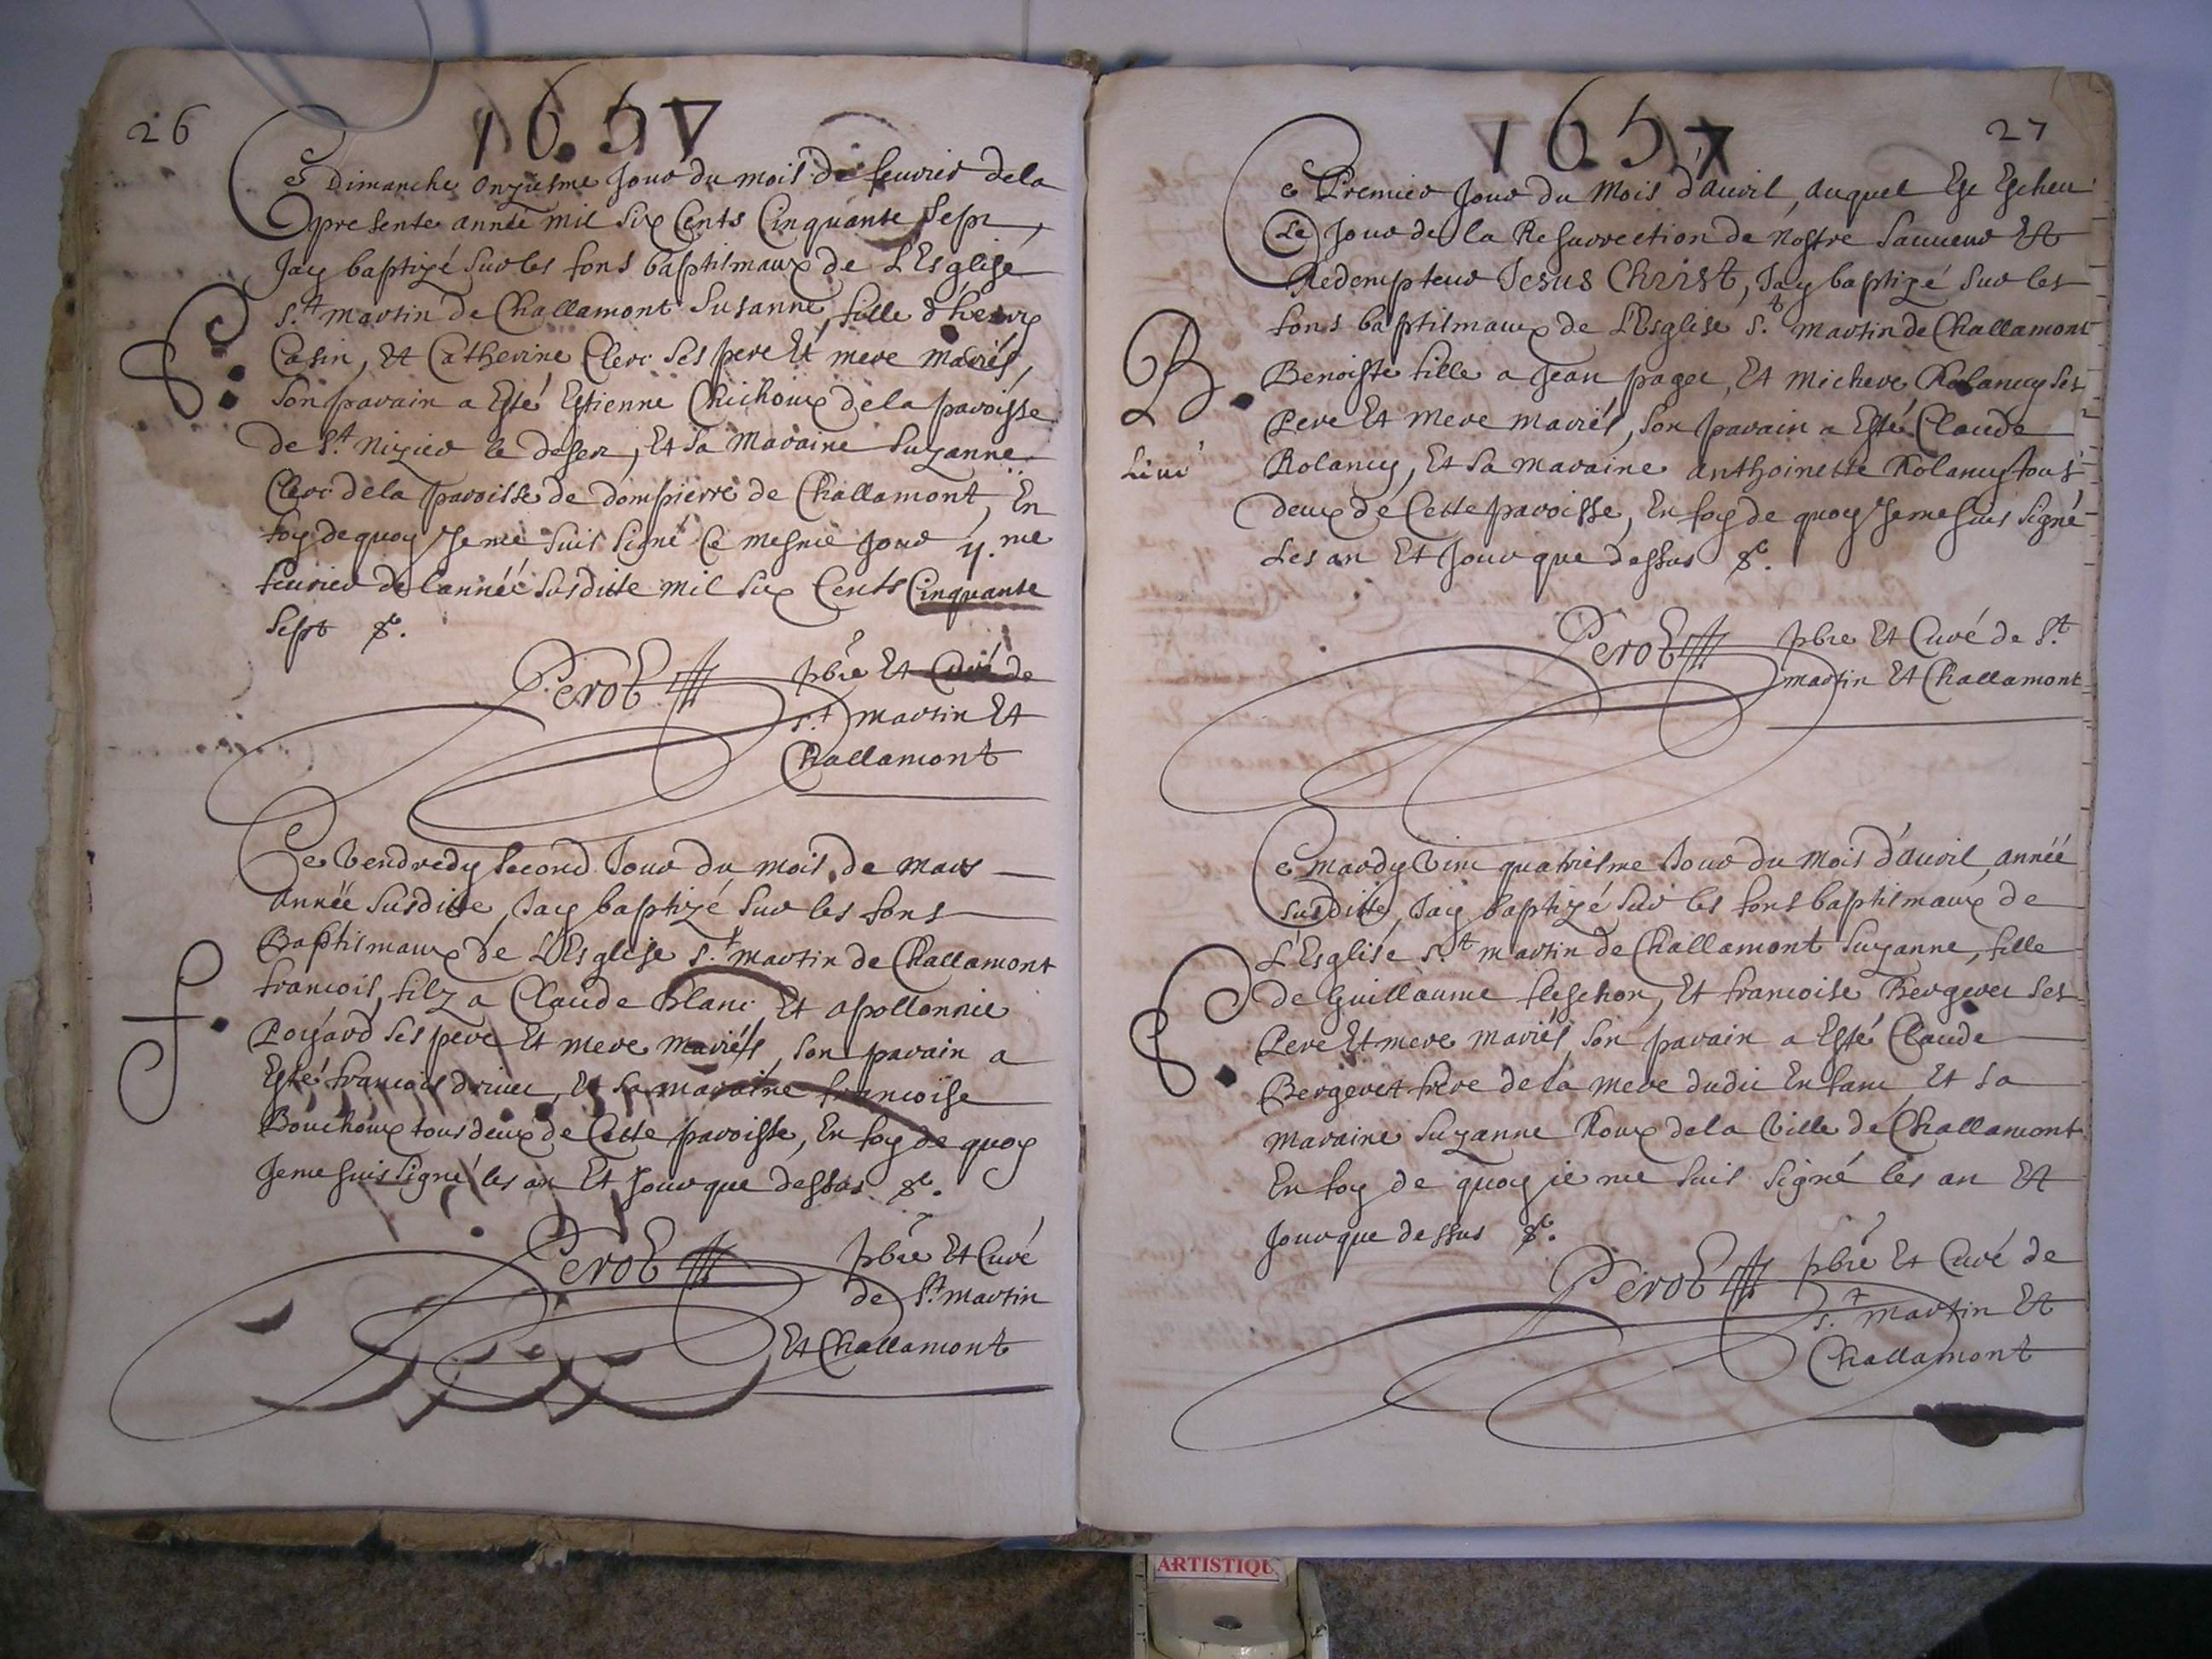 26
1657
Ce Dimanche onziesme Jour du mois de feuvrier dela
presente année mil six Cents Cinquante Sept,
Jay baptizé sur les fons baptismaux de L'Esglise
S.t martin de Challamont Susanne, fille d'henry
Casin, et Catherine Clerc ses pere et mere mariés,
Son parain a Esté Estienne Chichoux dela paroisse
de S.t Nizier le desert, et sa Maraine Suzanne
Clerc dela paroisse de dompierre de Challamont, En
foy dequoy Je me suis signé Ce mesme Jour 11.me
feuvrier de l'année susditte mil six Cents Cinquante
Sept &c.
S.
Perot pbre et Curé de
S.t martin et
Challamont
Ce Vendredy second Jour du mois de mars
année susditte, Jay baptizé sur les fons
Baptismaux de L'Esglise S.t martin de Challamont
francois, filz a Claude blanc et apollonnie
Poyard ses pere et mere mariés, son parain a
Esté francois drivet, et sa maraine francoise
Bouchoux tous deux de Cette paroisse, En foy de quoy
Je me suis signé les an et Jour que dessus &c.
f.
Perot pbre et Curé
de S.t martin
et Challamont
27
1657
Ce Premier Jour du Mois d'Avril, auquel Est Escheu
Le Jour de la Resurrection de Nostre Sauveur et
Redempteur Jesus Christ, Jay baptizé sur les
fons baptismaux de L'Esglise S.t martin de Challamont
Benoiste fille a Jean paget, et micheve Rolancy ses
Pere et mere mariés, son parain a Esté Claude
Rolancy, et sa maraine anthoinette Rolancy tous
deux de Cette paroisse, En foy de quoy Je me suis signé
Les an et Jour que dessus &c.
B.
Perot pbre et Curé de S.t
martin et Challamont
Ce mardy vint quatriesme Jour du Mois d'Avril, année
susditte, Jay baptizé sur les fons baptismaux de
L'Esglise S.t martin de Challamont Suzanne, fille
de Guillaume fleschon, et francoise Bergeret ses
Pere et mere mariés, son parain a Esté Claude
Bergeret frere de la mere dudit Enfant et sa
maraine Suzanne Roux dela Ville de Challamont
En foy de quoy je me suis signé les an et
Jour que dessus &c.
S.
Perot pbre et Curé de
S.t martin et
Challamont
ARTISTIQU